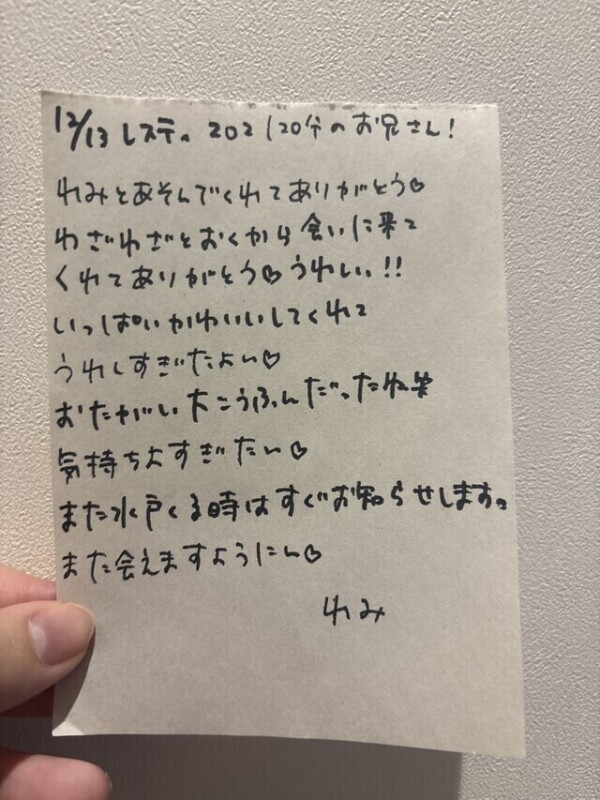 12/13 レスティ 202 120分のお兄さん!
れみとあそんでくれてありがとう♡
わざわざとおくから会いに来て
くれてありがとう♡うれしい!!
いっぱいかわいいしてくれて
うれしすぎたよ〜♡
おたがい大こうふんだったね笑
気持ちよすぎた〜♡
また水戸くる時はすぐお知らせします。
また会えますように〜♡
れみ